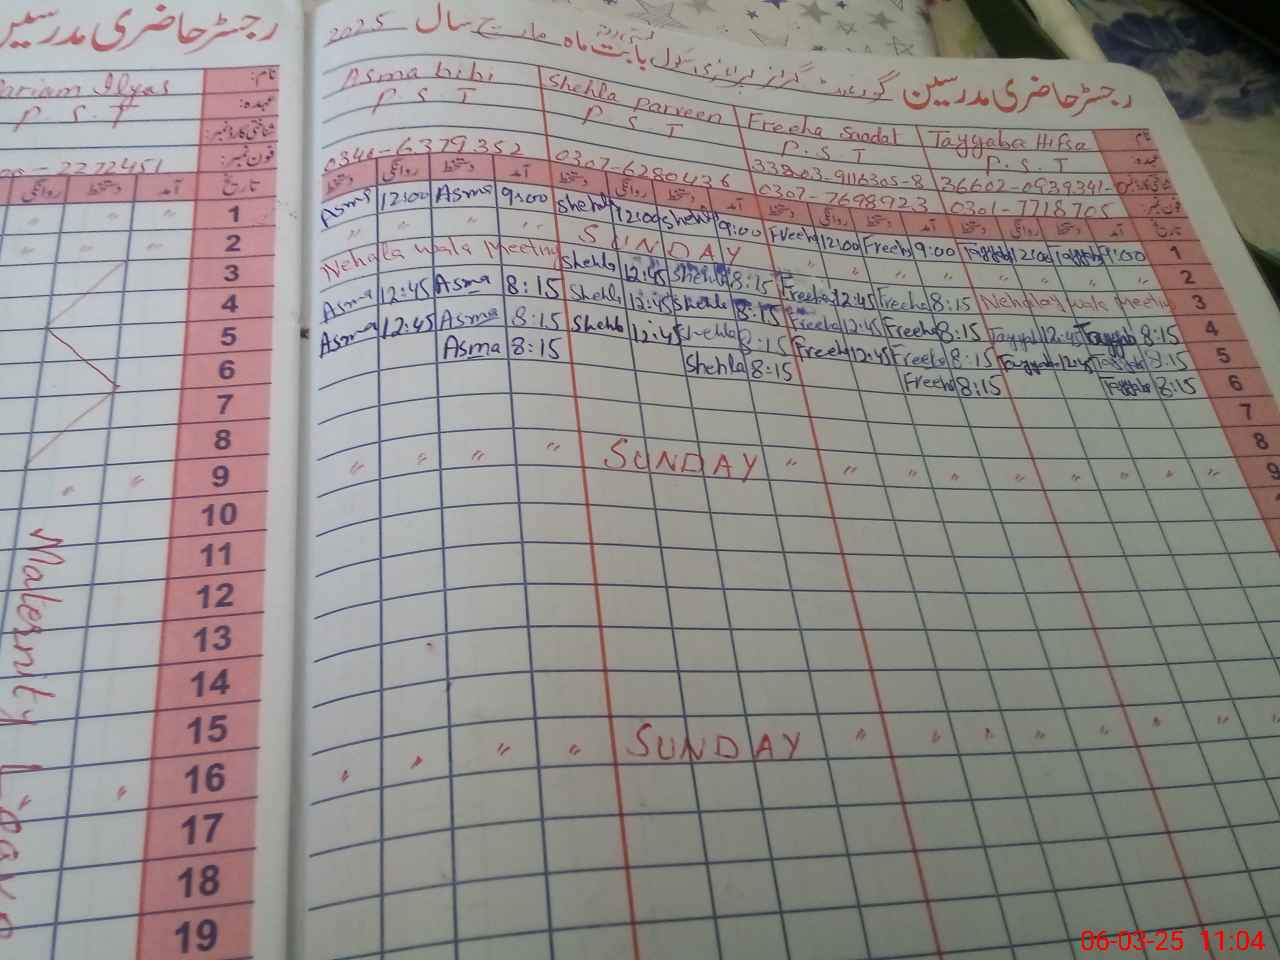 رجسٹر حاضری مدرسین گورنمنٹ گرلز پرائمری سکول بابت ماہ مارچ سال 2025
رجسٹر حاضری مدرسین
نام: Mariam Ilyas
عہدہ: P.S.T
شناختی کارڈ نمبر:
فون نمبر: 2272451
تاریخ آمد دستخط روانگی
1 " " "
2 " " "
3
4
5
6
7
8
9 " "
10
11
12
13
14
15
16 "
17
18
19
Maternity Leave
Asma bibi Shehla parveen Freeha Saadat Tayyaba Hifsa نام
P.S.T P.S.T P.S.T P.S.T عہدہ
33203-9116305-8 36602-0939341-
0346-6379352 0307-6280436 0307-7698923 0301-7718705 فون نمبر
دستخط روانگی دستخط آمد دستخط روانگی دستخط آمد دستخط روانگی دستخط آمد دستخط روانگی دستخط آمد تاریخ
Asma 12:00 Asma 9:00 Shehla 12:00 Shehla 9:00 Freeha 12:00 Freeha 9:00 Tayyab 12:00 Tayyab 9:00 1
" " " " SUNDAY " " " " " " " 2
Nehala wala Meeting Shehla 12:45 Shehla 8:15 Freeha 12:45 Freeha 8:15 Nehalay wala Meeting 3
Asma 12:45 Asma 8:15 Shehla 12:45 Shehla 8:15 Freeha 12:45 Freeha 8:15 Tayyab 12:45 Tayyab 8:15 4
Asma 12:45 Asma 8:15 Shehla 12:45 Shehla 8:15 Freeha 12:45 Freeha 8:15 Tayyab 12:45 Tayyab 8:15 5
Asma 8:15 Shehla 8:15 Freeha 8:15 Tayyab 8:15 6
7
8
" " " " SUNDAY " " " " " " " " 9
" " " " SUNDAY " " " " " " "
06-03-25 11:04